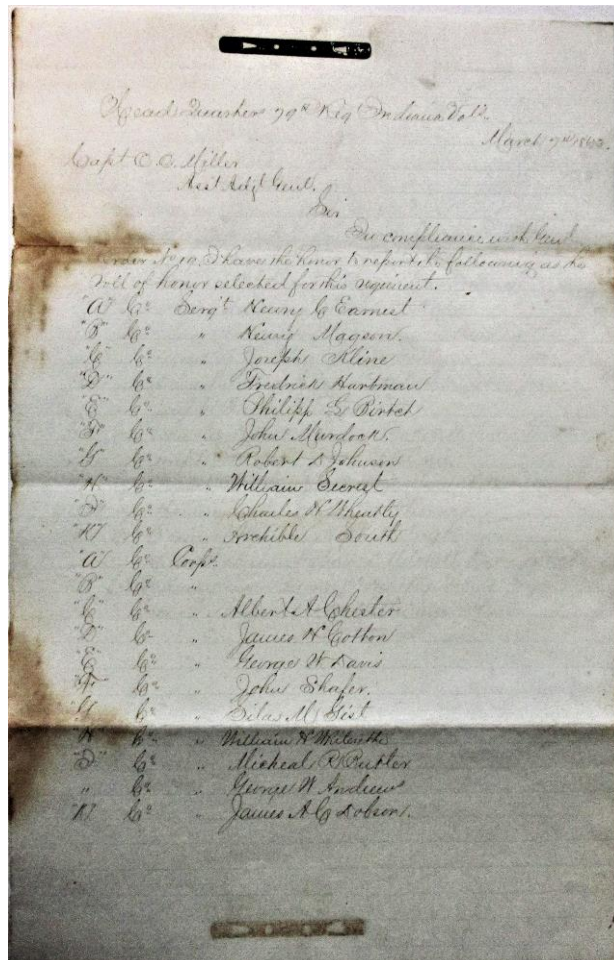 Head Quarters 79th Regt Indiana Vols.
March 7th 1863.
Capt C. C. Miller
Asst Adjt Genl.
Sir
In compliance with Genl
Order No 10, I have the honor to report the following as the
roll of honor selected for this regiment.
"A" Co Sergt Henry C Earnest
"B" Co " Henry Magson.
"C" Co " Joseph Kline
"D" Co " Fredrick Hartman
"E" Co " Philipp G
"F" Co " John Murdock.
"G" Co " Robert D Johnson
"H" Co " William Secrest
"I" Co " Charles H Wheatly
"K" Co " Archible South
"A" Co Corpl.
"B" Co "
"C" Co " Albert A Chester
"D" Co " James H Cotton
"E" Co " George W Davis
"F" Co " John Shafer.
"G" Co " Silas M Gist
"H" Co " William H
"I" Co " Micheal R Butler
" Co " George W Andrews
"K" Co " James A C Dobson.